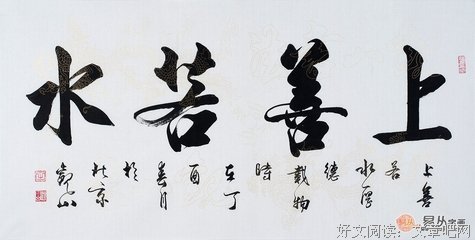 上善若水
上善
若
水厚
德
載物
時
在丁
酉
春月
於
北京
易从字画
好文阅读：文章吧网